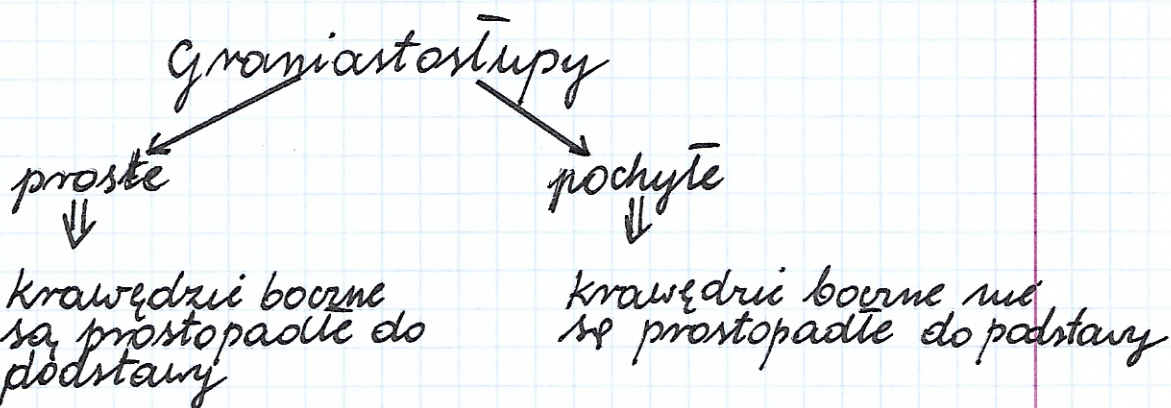 Graniastosłupy
proste pochyłe
krawędzie boczne
są prostopadłe do
podstawy
krawędzie boczne nie
są prostopadłe do podstawy